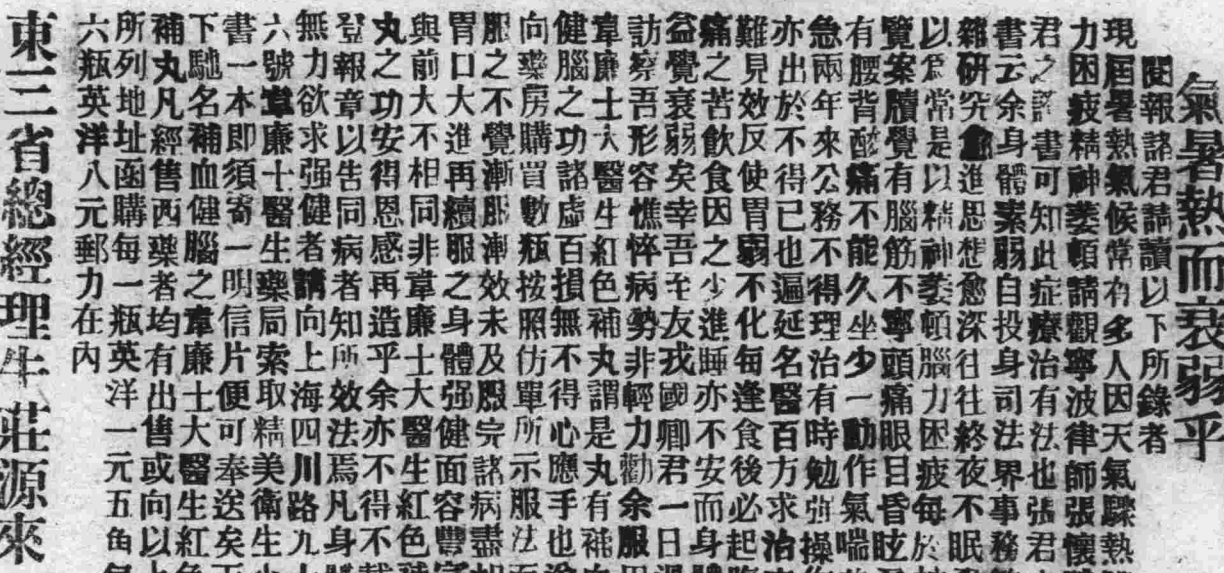 氣暑熱而衰弱乎
閱報諸君請讀以下所錄者
現屆暑熱氣候常有多人因天氣驟熱
力困疲精神萎頓請觀寧波律師張懷
君之書可知此症療治有法也張君
書云余身體素弱自投身司法界事務
雜研究愈進思想愈深往往終夜不眠
以為常是以精神萎頓腦力困疲每於
覽案牘覺有腦筋不寧頭痛眼目昏眩
有腰背酸痛不能久坐少一動作氣喘
急兩年來公務不得理治有時勉強操
亦出於不得已也遍延名醫百方求治
難見效反使胃弱不化每逢食後必起
痛之苦飲食因之少進睡亦不安而身
益覺衰弱矣幸吾至友戎國卿君一日
訪察吾形容憔悴病勢非輕力勸余服
韋廉士大醫生紅色補丸謂是丸有補
健腦之功諸虛百損無不得心應手也
向藥房購買數瓶按照仿單所示服法
服之不覺漸服漸效未及服完諸病盡
胃口大進再續服之身體強健面容豐
與前大不相同非韋廉士大醫生紅色
丸之功安得恩感再造乎余亦不得不
登報章以告同病者知所效法焉凡身
無力欲求强健者請向上海四川路九
六號韋廉士醫生藥局索取精美衛生
書一本即須寄一明信片便可奉送矣
下馳名補血健腦之韋廉士大醫生紅
補丸凡經售西藥者均有出售或向以
所列地址函購每一瓶英洋一元五角
六瓶英洋八元郵力在內
東三省總經理牛莊源來